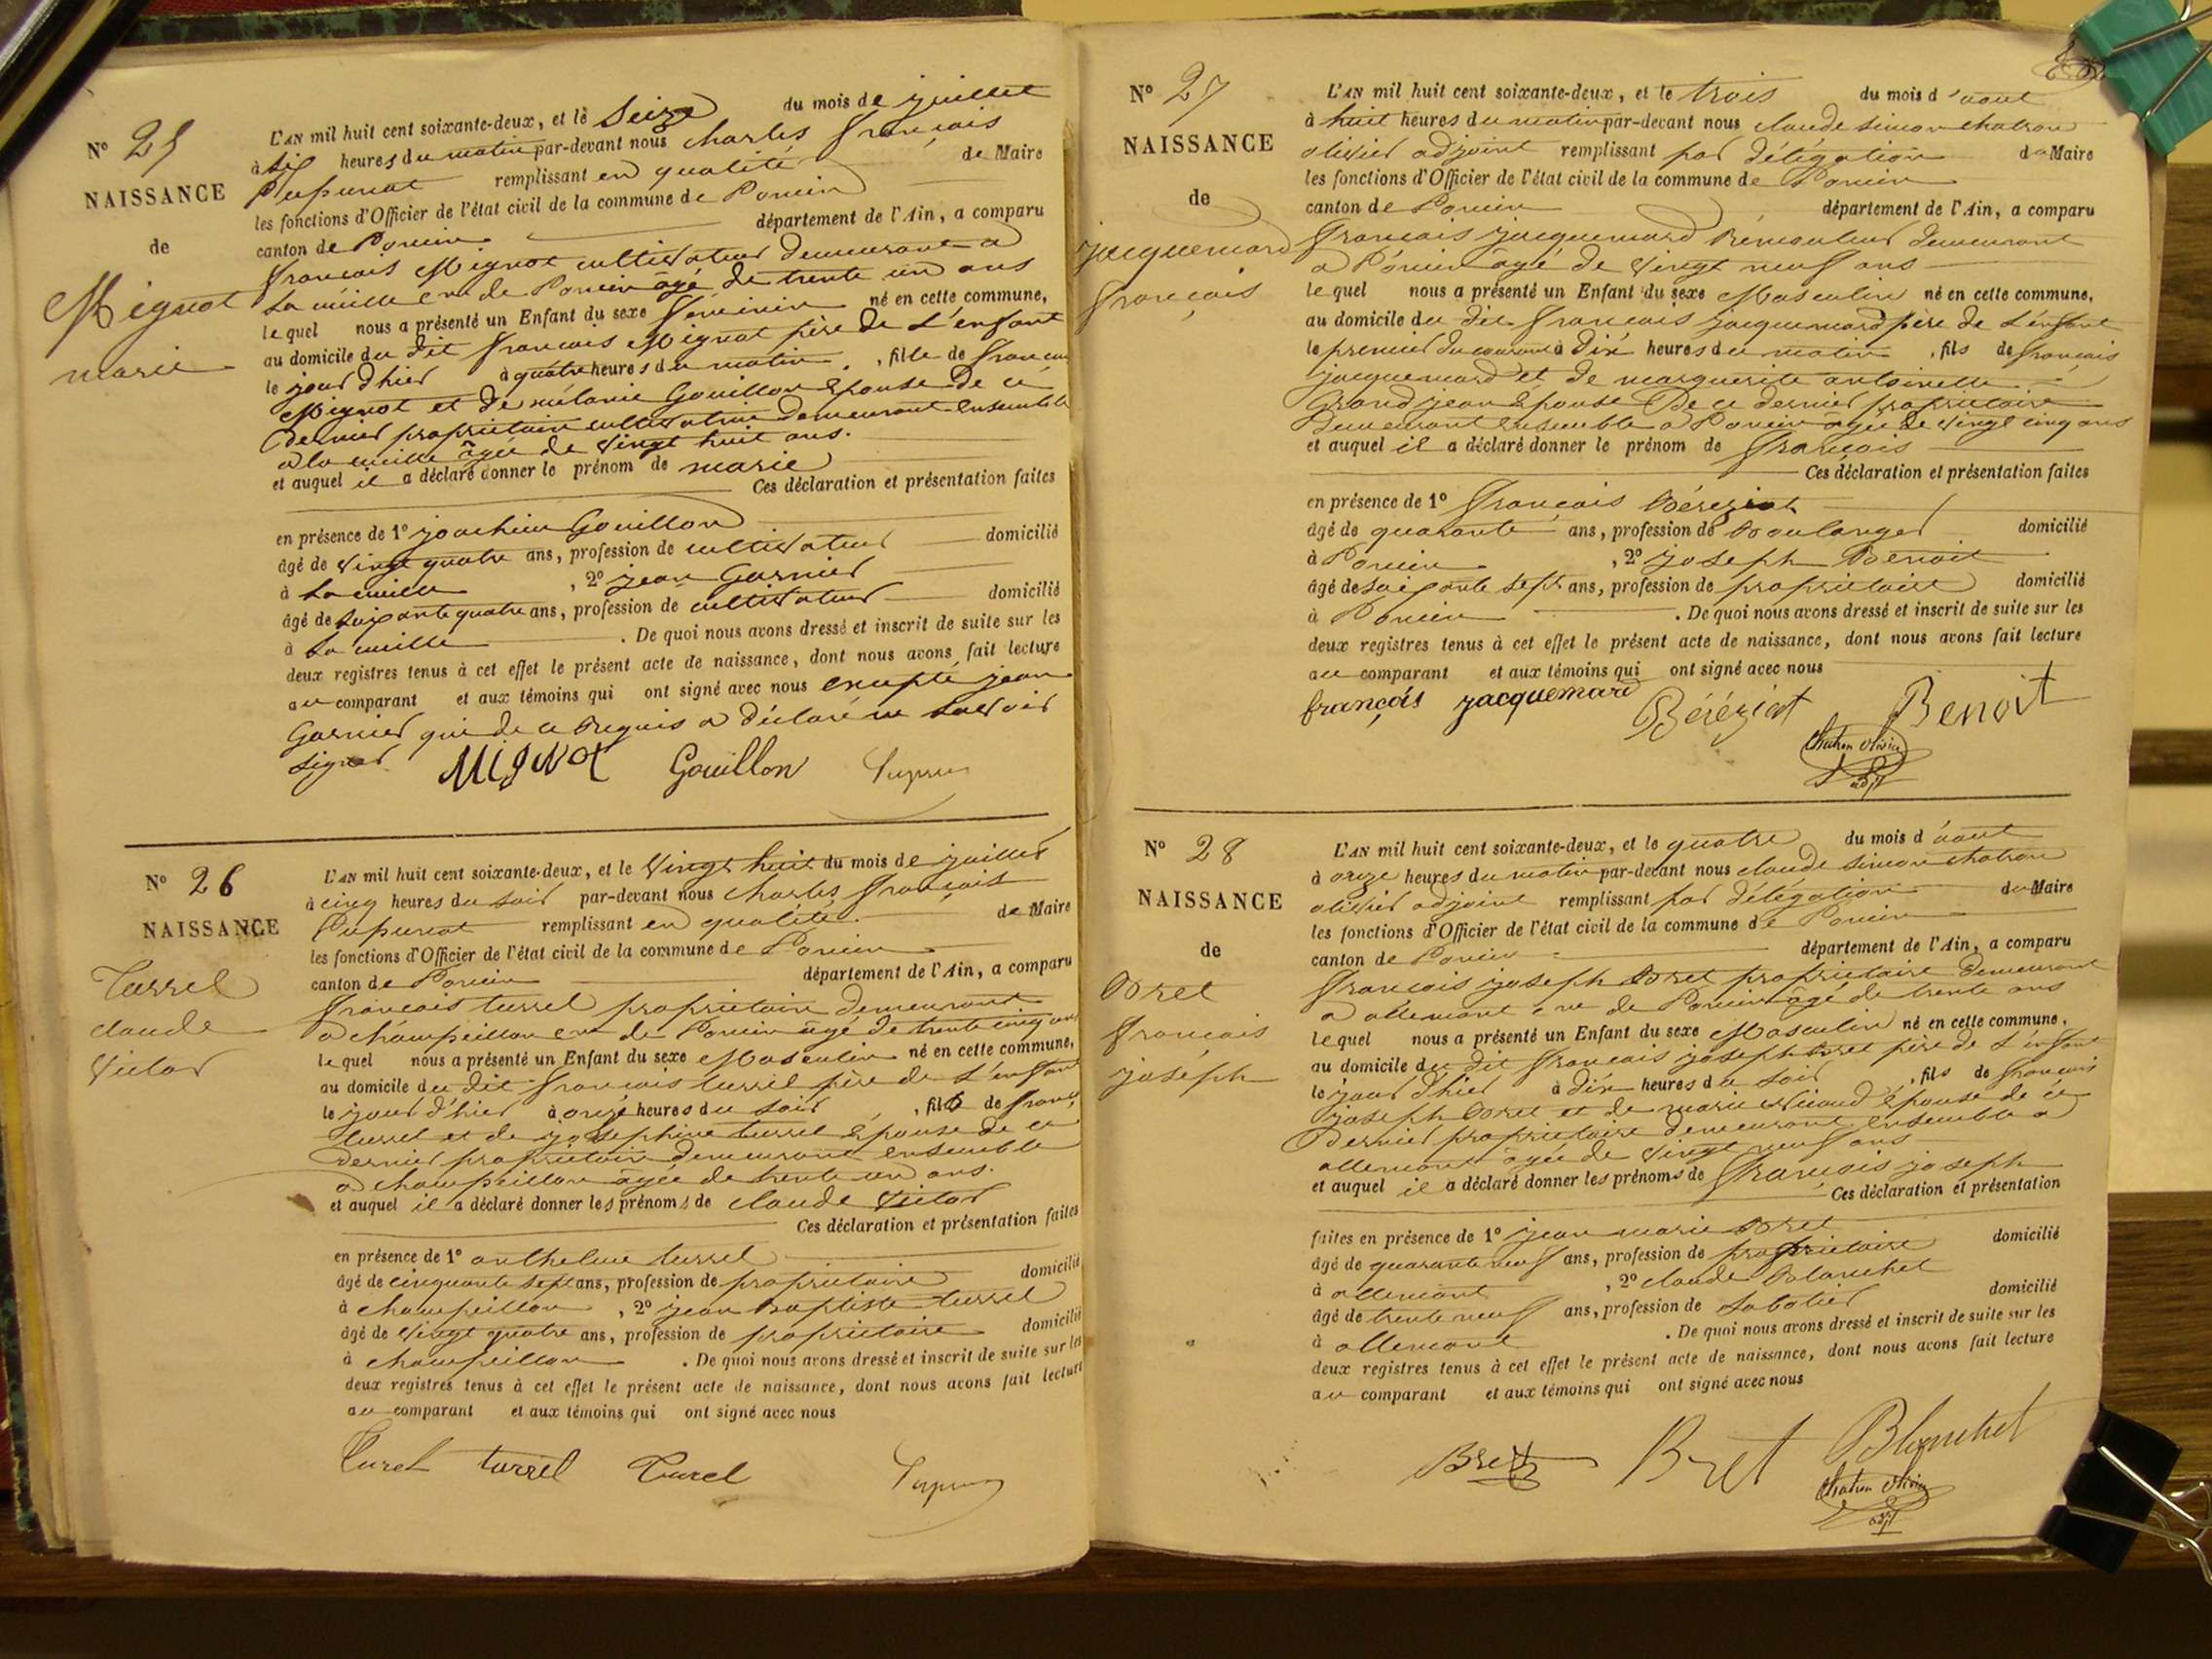 N° 25
NAISSANCE
de
Mignot
marie
L'AN mil huit cent soixante-deux, et le Seize du mois de juillet
à six heures du matin par-devant nous charles françois
Pupunat remplissant en qualité de Maire
les fonctions d'Officier de l'état civil de la commune de Poncin
canton de Poncin département de l'Ain, a comparu
françois Mignot cultivateur demeurant a
la cueille cne de Poncin âgé de trente un ans
le quel nous a présenté un Enfant du sexe féminin né en cette commune,
au domicile du dit françois Mignot père de l'enfant
le jour d'hier à quatre heures du matin, fille de françois
Mignot et de mélanie Gouillon épouse de ce
dernier propriétaire cultivatrice demeurant ensemble
a la cueille âgée de vingt huit ans.
et auquel il a déclaré donner le prénom de marie
Ces déclaration et présentation faites
en présence de 1° joachim Gouillon
âgé de vingt quatre ans, profession de cultivateur domicilié
à La cueille, 2° jean Garnier
âgé de soixante quatre ans, profession de cultivateur domicilié
à La cueille. De quoi nous avons dressé et inscrit de suite sur les
deux registres tenus à cet effet le présent acte de naissance, dont nous avons fait lecture
au comparant et aux témoins qui ont signé avec nous excepté jean
Garnier qui de ce Requis a déclaré ne savoir
signer Mignot Gouillon
N° 26
NAISSANCE
Turrel
claude
victor
L'AN mil huit cent soixante-deux, et le vingt huit du mois de juillet
à cinq heures du soir par-devant nous charles françois
Pupunat remplissant en qualité de Maire
les fonctions d'Officier de l'état civil de la commune de Poncin
canton de Poncin département de l'Ain, a comparu
françois turrel propriétaire demeurant
a champeillon cne de Poncin âgé de trente cinq ans
le quel nous a présenté un Enfant du sexe Masculin né en cette commune,
au domicile du dit françois turrel père de l'enfant
le jour d'hier à onze heures du soir, fils de franç
turrel et de josephine turrel épouse de ce
dernier propriétaire demeurant ensemble
a champeillon âgée de trente un ans.
et auquel il a déclaré donner les prénoms de claude victor
Ces déclaration et présentation faites
en présence de 1° anthelme turrel
âgé de cinquante sept ans, profession de propriétaire domicilié
à champeillon, 2° jean Baptiste turrel
âgé de vingt quatre ans, profession de propriétaire domicilié
à champeillon. De quoi nous avons dressé et inscrit de suite sur les
deux registres tenus à cet effet le présent acte de naissance, dont nous avons fait lecture
au comparant et aux témoins qui ont signé avec nous
Turel turrel Turel
N° 27
NAISSANCE
de
jacquemard
françois
L'AN mil huit cent soixante-deux, et le trois du mois d'aout
à huit heures du matin par-devant nous claude simon chatron
olivier adjoint remplissant par délégation du Maire
les fonctions d'Officier de l'état civil de la commune de Poncin
canton de Poncin département de l'Ain, a comparu
françois jacquemard Rémouleur demeurant
a Poncin âgé de vingt neuf ans
le quel nous a présenté un Enfant du sexe Masculin né en cette commune,
au domicile du dit françois jacquemard père de l'enfant
le premier du courant à dix heures du matin, fils de françois
jacquemard et de marguerite antoinette
Grandjean épouse De ce dernier propriétaire
Demeurant ensemble a Poncin âgée de vingt cinq ans
et auquel il a déclaré donner le prénom de françois
Ces déclaration et présentation faites
en présence de 1° françois Béréziat
âgé de quarante ans, profession de Boulanger domicilié
à Poncin, 2° joseph Benoit
âgé de soixante sept ans, profession de propriétaire domicilié
à Poncin. De quoi nous avons dressé et inscrit de suite sur les
deux registres tenus à cet effet le présent acte de naissance, dont nous avons fait lecture
au comparant et aux témoins qui ont signé avec nous
françois jacquemard Béréziat Benoit
Chatron Olivier
adjt
N° 28
NAISSANCE
de
Bret
françois
joseph
L'AN mil huit cent soixante-deux, et le quatre du mois d'aout
à onze heures du matin par-devant nous claude simon chatron
olivier adjoint remplissant par délégation du Maire
les fonctions d'Officier de l'état civil de la commune de Poncin
canton de Poncin département de l'Ain, a comparu
françois joseph Bret propriétaire demeurant
a allement cne de Poncin âgé de trente ans
le quel nous a présenté un Enfant du sexe Masculin né en cette commune,
au domicile du dit françois joseph Bret père de l'enfant
le jour d'hier à dix heures du soir, fils de françois
joseph Bret et de marie épouse de ce
Dernier propriétaire demeurant ensemble a
allement âgée de vingt neuf ans
et auquel il a déclaré donner les prénoms de françois joseph
Ces déclaration et présentation
faites en présence de 1° jean marie Bret
âgé de quarante neuf ans, profession de propriétaire domicilié
à allement, 2° claude Blanchet
âgé de trente neuf ans, profession de Sabotier domicilié
à allement. De quoi nous avons dressé et inscrit de suite sur les
deux registres tenus à cet effet le présent acte de naissance, dont nous avons fait lecture
au comparant et aux témoins qui ont signé avec nous
Bret Bret Blanchet
Chatron Olivier
adjt